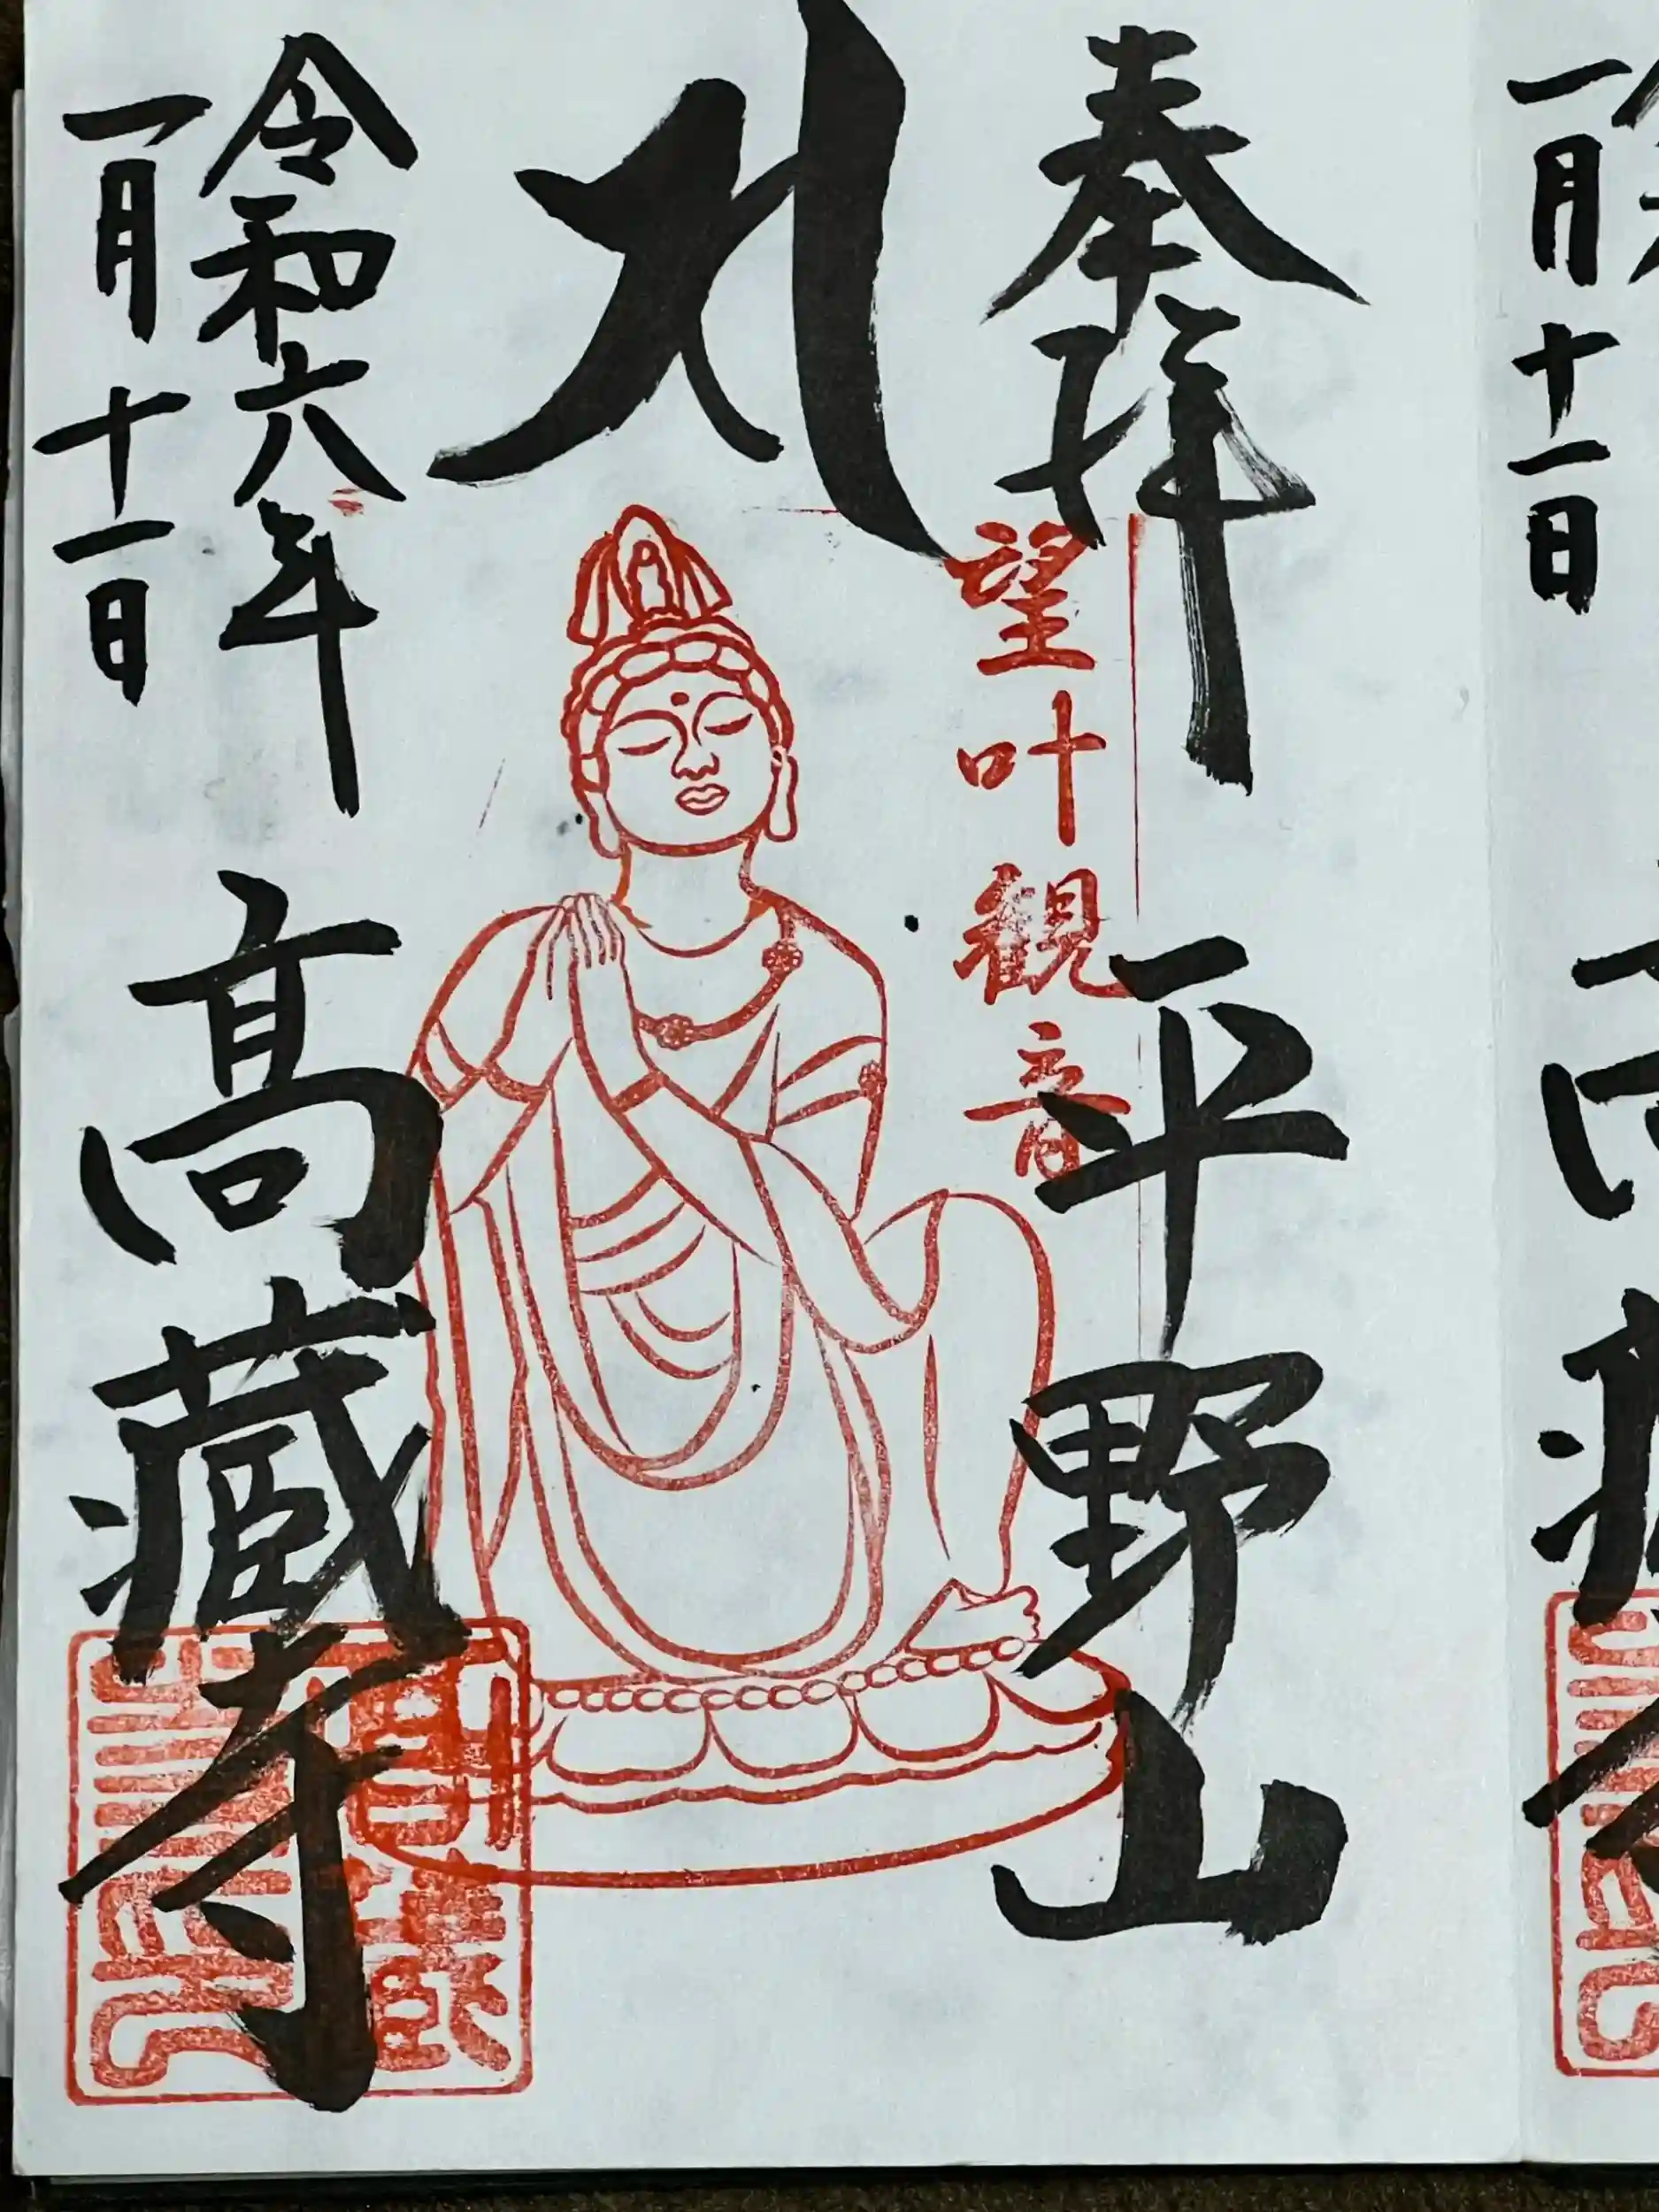 奉拝
平野山
望叶観音
令和六年
一月十一日
高蔵寺
一月十一日